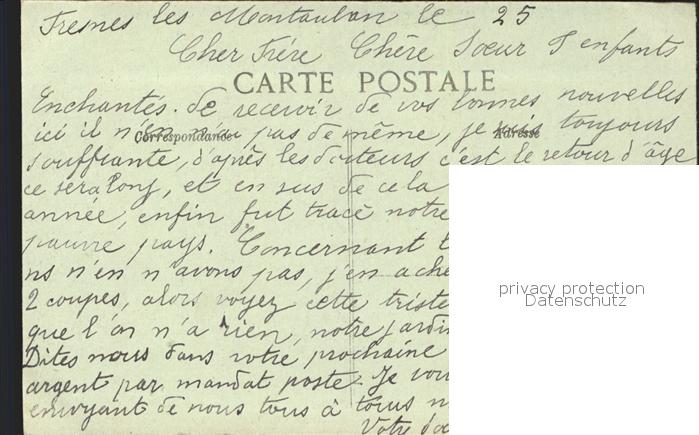 Fresnes les Montauban le 25
Cher Frére Chère Sœur & enfants
CARTE POSTALE
Enchantés de recevoir de vos bonnes nouvelles
ici il n'en pas de même, je suis toujours
Correspondance Adresse
souffrante, d'après les docteurs c'est le retour d'âge
ce sera long, et en sus de cela
année, enfin fut tracé notre
pauvre pays. Concernant
ns n'en n'avons pas, j'en
2 coupes, alors voyez cette triste
que l'on n'a rien, notre jardin
Dites nous dans votre prochaine
argent par mandat poste. Je
envoyant de nous tous à tous
Votre
privacy protection
Datenschutz